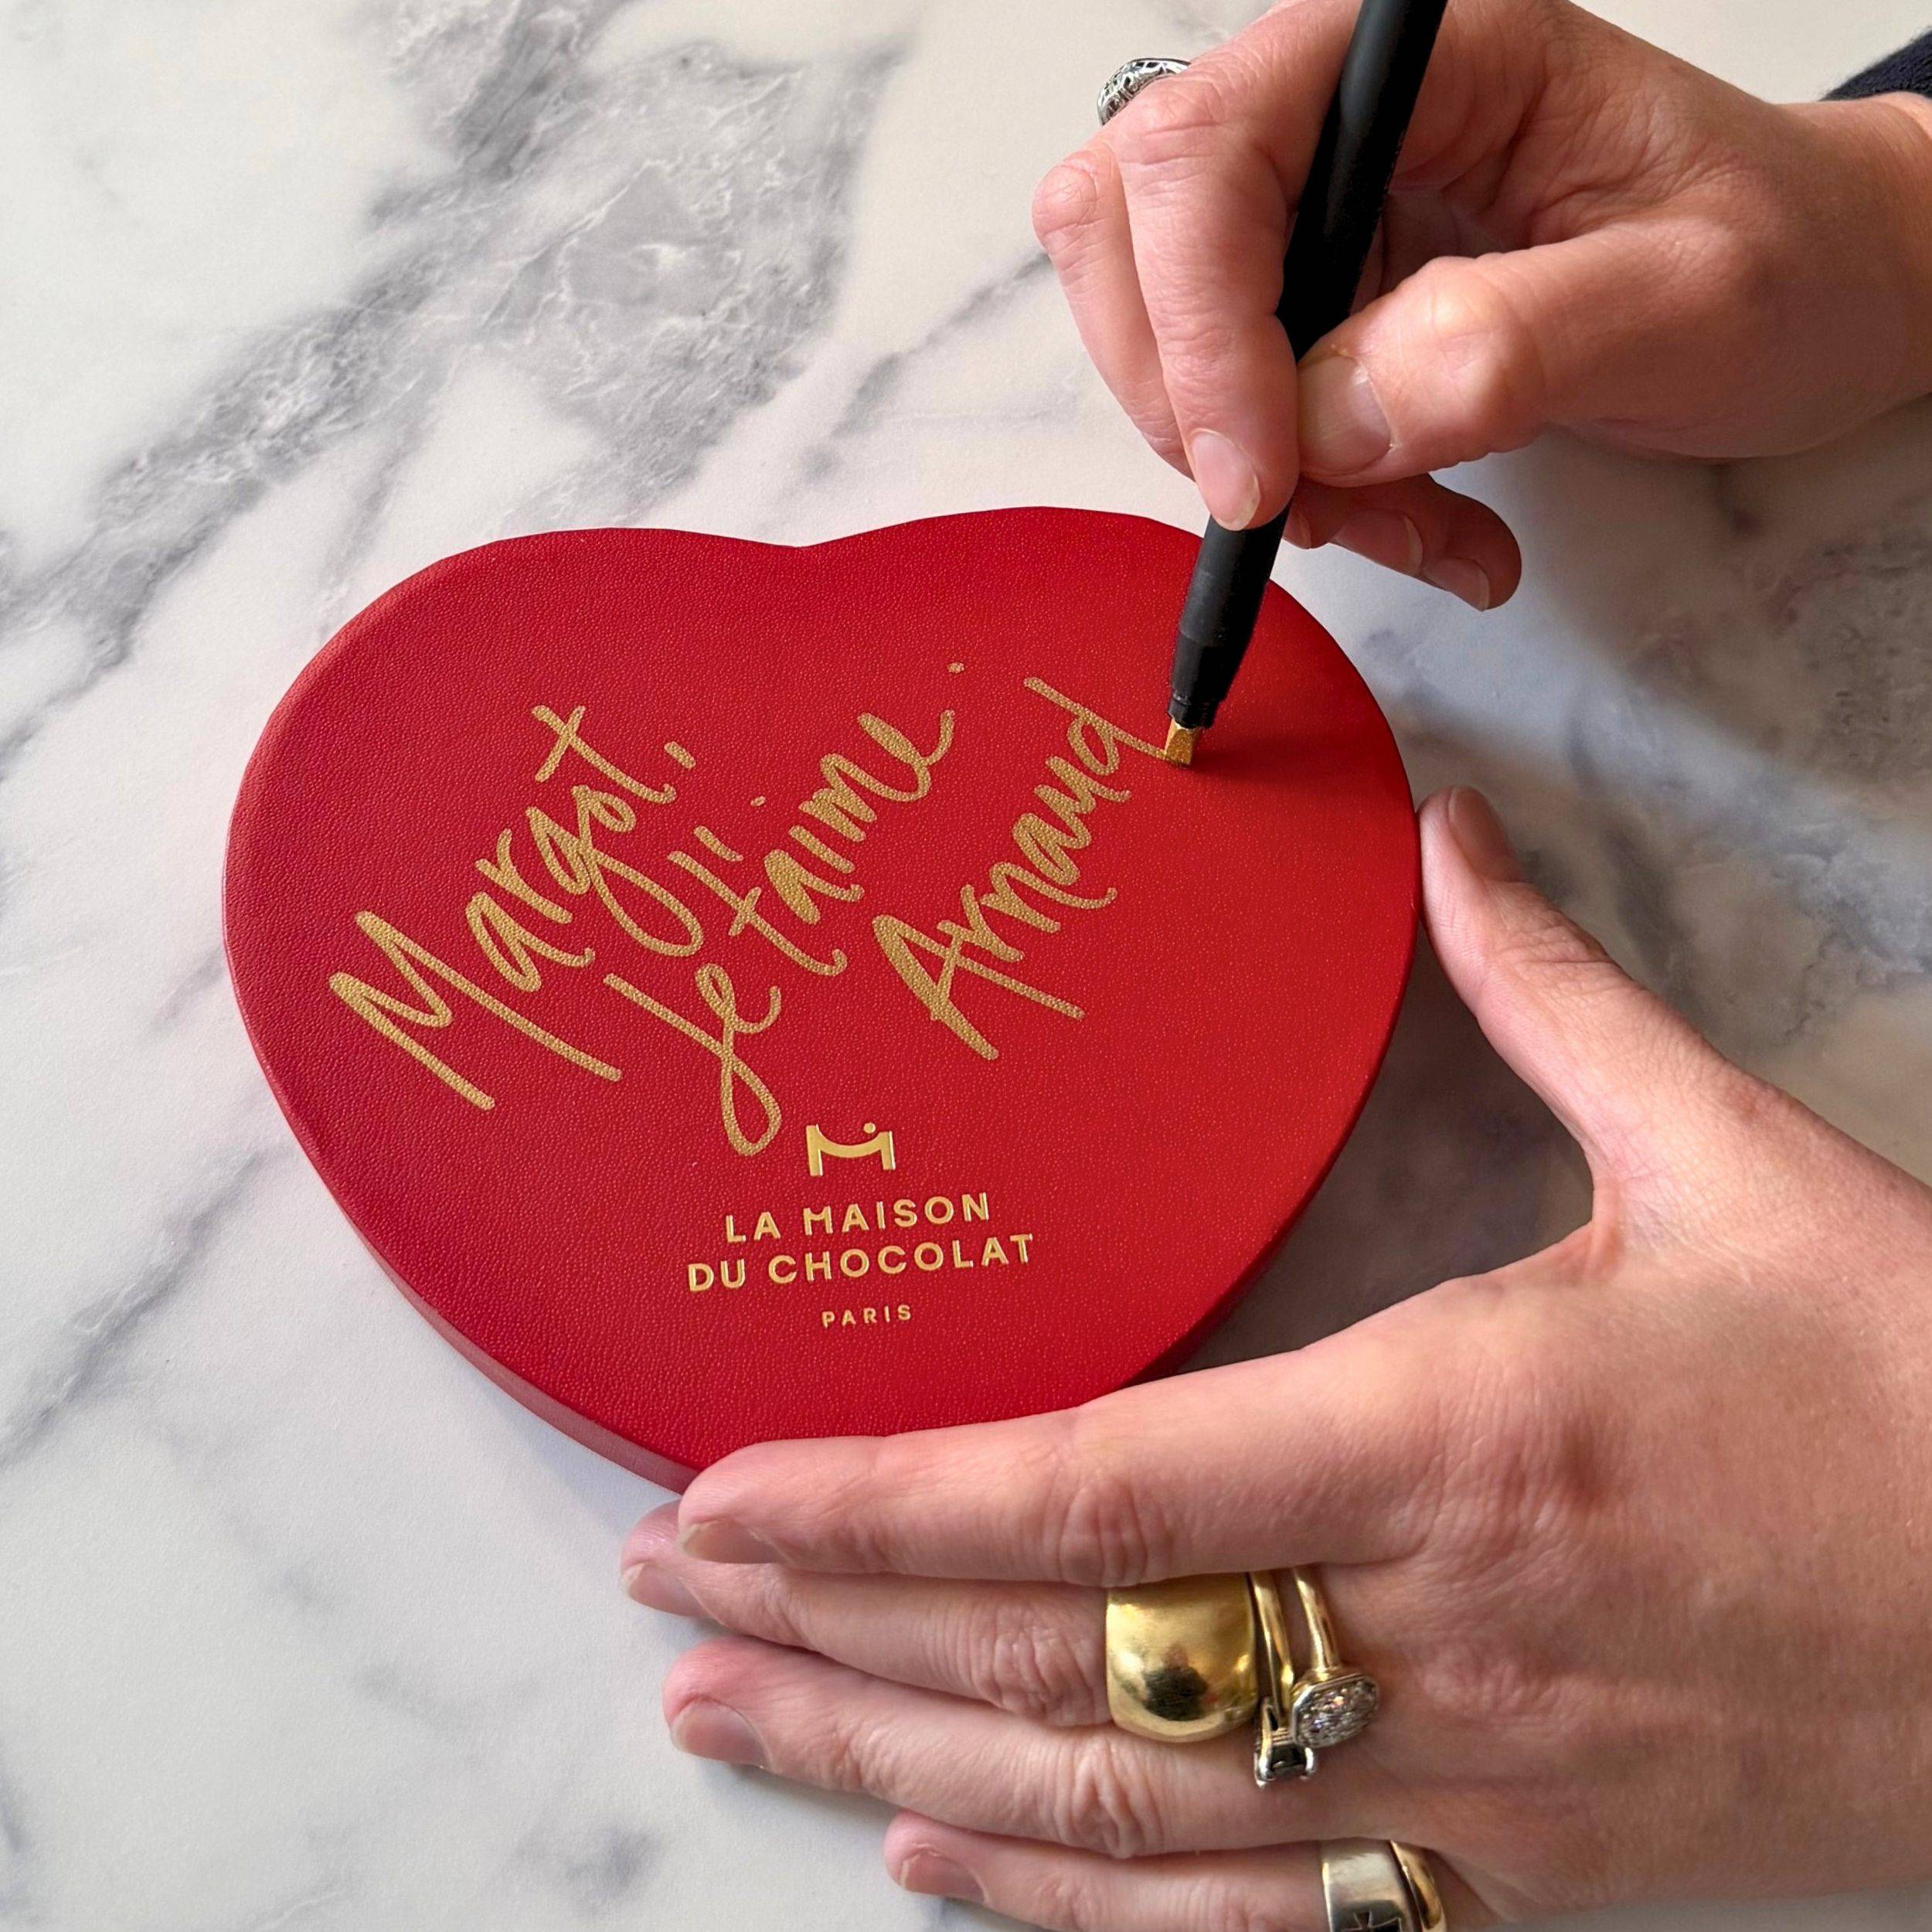 Margot,
Je t'aime.
Arnaud
LA MAISON
DU CHOCOLAT
PARIS